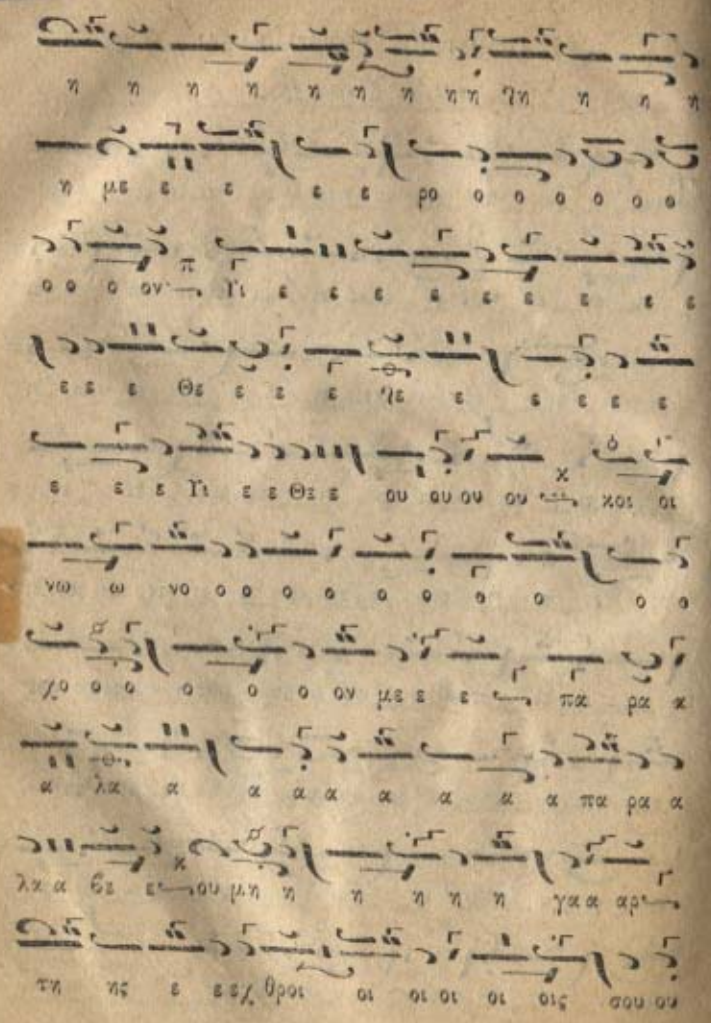 η η η η η η η η η χη η η η
η με ε ε ε ε ρο ο ο ο ο ο ο
ο ο ο ον Υι ε ε ε ε ε ε ε ε
ε ε ε Θε ε ε ε χε ε ε ε ε ε
ε ε ε Υι ε ε Θε ε ου ου ου ου κοι οι
νω ω νο ο ο ο ο ο ο ο ο ο ο
χο ο ο ο ο ο ον με ε ε πα ρα α
α λα α α α α α α α α πα ρα α
λα α βε ε ου μη η η η η η γα α αρ
τη ης ε ε εχ θροι οι οι οι οι οις σου ου